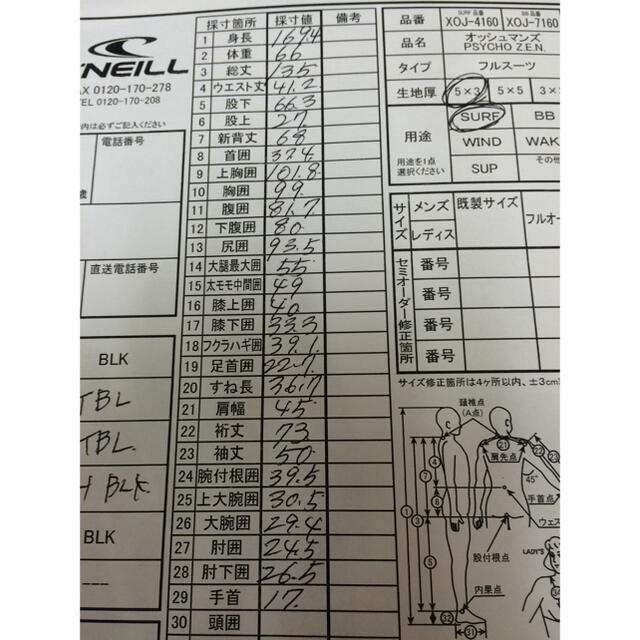 O'NEILL
AX 0120-170-278
TEL 0120-170-208
内は必ずご記入ください
電話番号
歳
直送電話番号
BLK
TBL
TBL.
BLK.
BLK
---
採寸箇所 採寸値 備考
1 身長 169.4
2 体重 66
3 総丈 135
4 ウエスト丈 41.2
5 股下 66.3
6 股上 27.
7 新背丈 68
8 首囲 37.4.
9 上胸囲 101.8
10 胸囲 99.
11 腹囲 81.7
12 下腹囲 80
13 尻囲 93.5
14 大腿最大囲 55
15 太モモ中間囲 49
16 膝上囲 40
17 膝下囲 33.3
18 フクラハギ囲 39.1.
19 足首囲 22.7.
20 すね長 36.7
21 肩幅 45
22 裄丈 73
23 袖丈 50
24 腕付根囲 39.5
25 上大腕囲 30.5
26 大腕囲 29.4
27 肘囲 24.5
28 肘下囲 26.5
29 手首 17.
30 頭囲
品番 SURF 品番 XOJ-4160 BB 品番 XOJ-7160
品名 オッシュマンズ PSYCHO Z.E.N.
タイプ フルスーツ
生地厚 5×3 5×5 3×
用途 SURF BB
WIND WAK
SUP その他
用途を1点
選択ください
サイズ メンズ 既製サイズ フルオー
レディス
セミオーダー修正箇所 番号
番号
番号
番号
サイズ修正箇所は4ヶ所以内、±3cm
頚椎点
(A点)
肩先点
45°
手首点
ウエス
股付根点
内果点
LADY'S
1
3
4
5
6
7
21
22
23
31
32